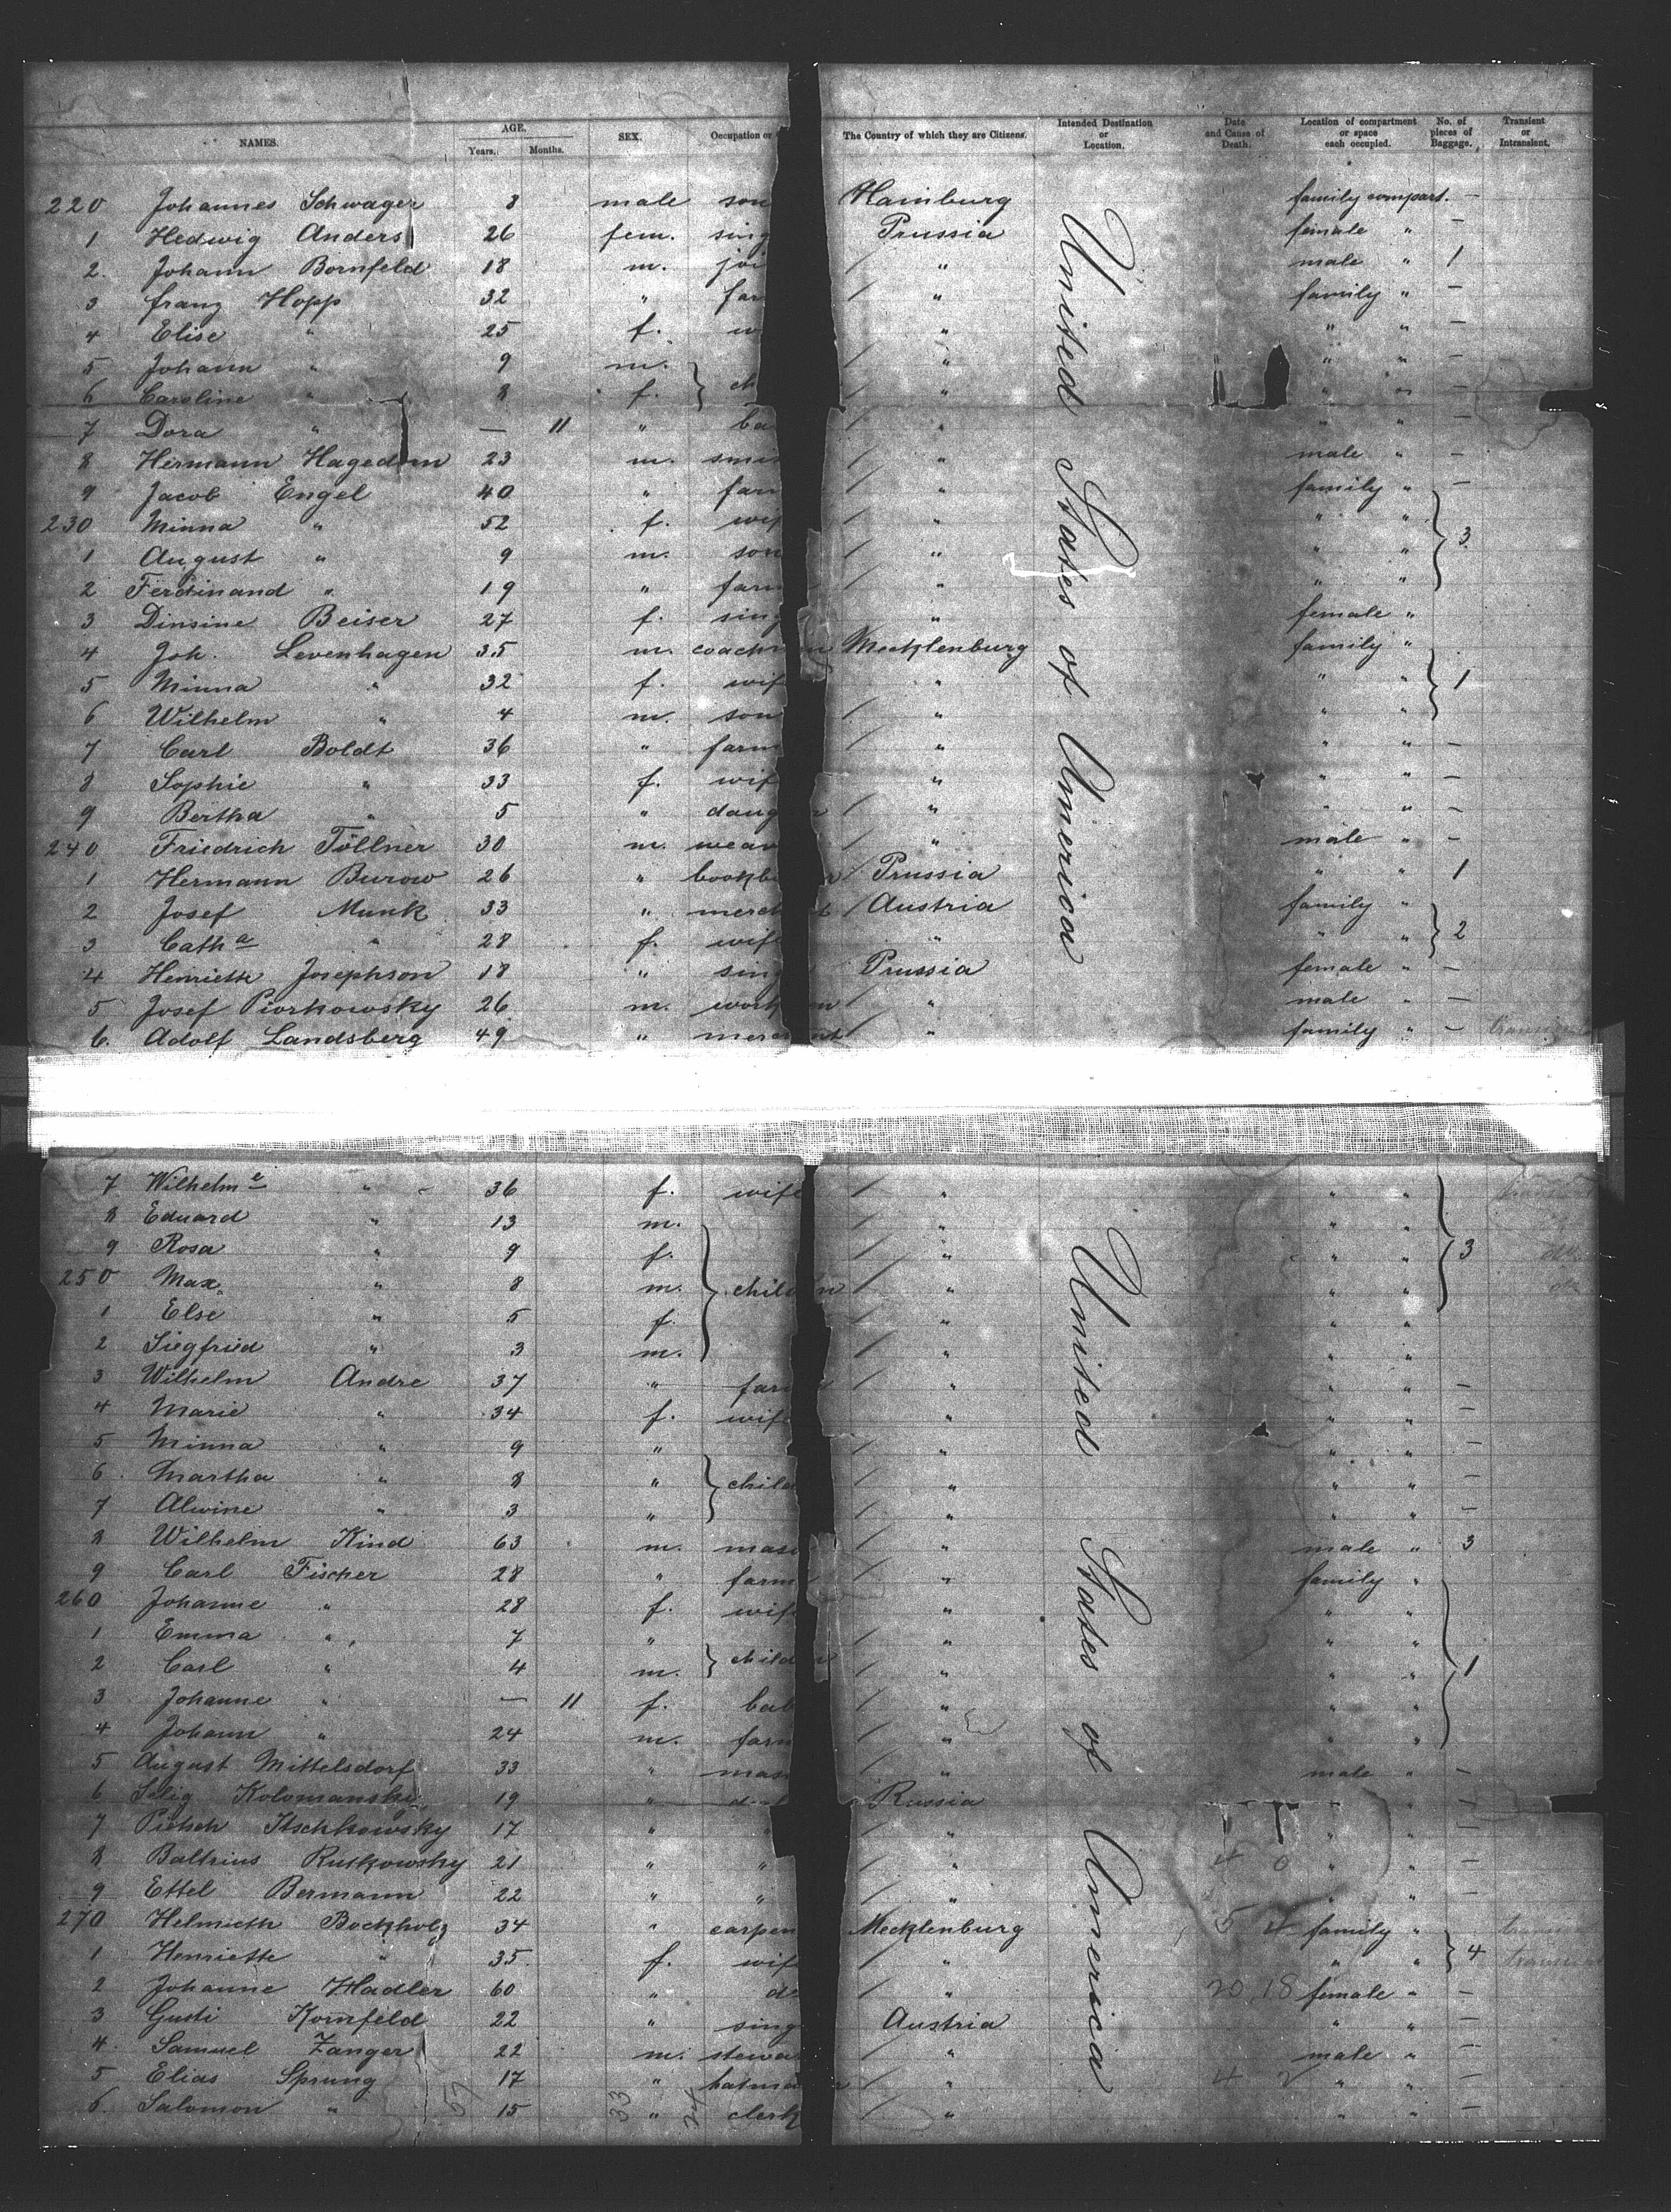 NAMES. AGE. Years. Months. SEX. Occupation or The Country of which they are Citizens. Intended Destination or Location. Date and Cause of Death. Location of compartment or space each occupied. No. of pieces of Baggage. Transient or Intransient.
220 Johannes Schwager 8 male son Hamburg family compart. —
1 Hedwig Anders 26 fem. sing Prussia female " —
2. Johann Bornfeld 18 m. joi / " male " 1
3 Franz Hopp 32 " far / " family " —
4 Elise " 25 f. w " " " —
5 Johann " 9 m. / " " " —
6 Caroline " 8 f. } ch / " " " —
7 Dora " — 11 " ba / " " " —
8 Hermann Hagedorn 23 m. smi / " male " —
9 Jacob Engel 40 " farm / " family " —
230 Minna " 52 f. wif / " " "
1 August " 9 m. son / " " " } 3.
2 Ferdinand " 19 " farm / " " "
3 Dinsine Beiser 27 f. sing " female "
4 Joh. Levenhagen 35 m. coachm n Mecklenburg family "
5 Minna " 32 f. wif " " " } 1
6 Wilhelm " 4 m. son / " " "
7 Carl Boldt 36 " farm / " " " —
8 Sophie " 33 f. wif " " " —
9 Bertha " 5 " daug r / " " " —
240 Friedrich Töllner 30 m. weav " male " —
1 Hermann Burow 26 " bookbi r / Prussia " " 1
2 Josef Munk 33 " merch t / Austria family "
3 Cath a " 28 f. wife " " " } 2
4 Henriette Josephson 18 " sing Prussia female " —
5 Josef Piorkowsky 26 m. work n / " male " —
6. Adolf Landsberg 49 " merc nt " family " —
United States of America
7 Wilhelm e " 36 f. wife / " " "
8 Eduard " 13 m. / " " "
9 Rosa " 9 f. / " " " } 3
250 Max " 8 m. } child n / " " "
1 Else " 5 f. / " " "
2 Siegfried " 3 m. / " " "
3 Wilhelm Andre 37 " far / " " " —
4 Marie " 34 f. wife " " " —
5 Minna " 9 " / " " " —
6. Martha " 8 " } child / " " " —
7 Alwine " 3 " / " " " —
8 Wilhelm Kind 63 m. maso / " male " 3
9 Carl Fischer 28 " farm / " family "
260 Johanne " 28 f. wife " " "
1 Emma " 7 " / " " "
2 Carl " 4 m. } child n / " " " } 1
3 Johanne " — 11 f. bab / " " "
4 Johann " 24 m. farm / " " "
5 August Mittelsdorf 33 " mas / " male " —
6 Selig Kolomansky 19 " Russia " " —
7 Pietsch Itschkowsky 17 " " / " " " —
8 Baltrius Rutkowsky 21 " " / " 4 0 " " —
9 Ettel Bermann 22 " " / " " " —
270 Helmuth Bockholz 34 " carpen Mecklenburg 5 4 family "
1 Henriette " 35 f. wif / " " " } 4
2 Johanne Hadler 60 " / " 20 18 female " —
3 Gusti Kornfeld 22 " sing Austria " " —
4. Samuel Zanger 22 m. stewa / " male " —
5 Elias Sprung 17 " hatma r / " 4 2 " " —
6. Salomon " 15 " clerk / " " " —
United States of America
57 33 24